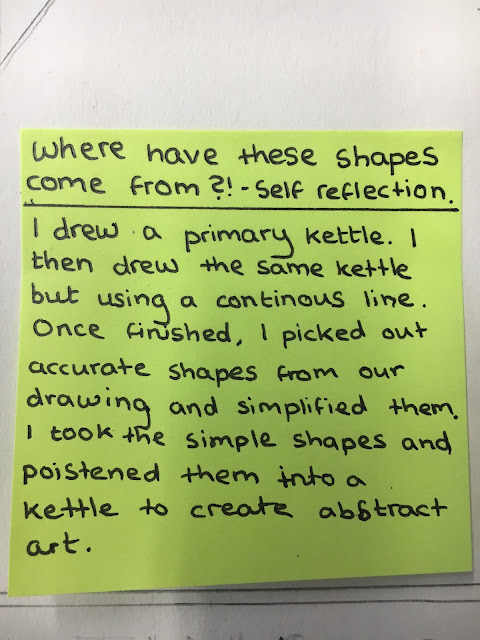 Where have these shapes
come from?! - Self reflection.
I drew a primary kettle. I
then drew the same kettle
but using a continous line.
Once finished, I picked out
accurate shapes from our
drawing and simplified them.
I took the simple shapes and
poistened them into a
kettle to create abstract
art.